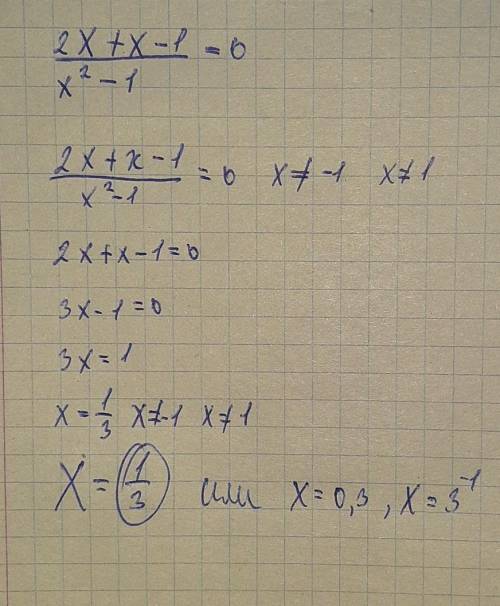 2x + x - 1 / x² - 1 = 0
2x + x - 1 / x² - 1 = 0 x ≠ -1 x ≠ 1
2x + x - 1 = 0
3x - 1 = 0
3x = 1
x = 1/3 x ≠ -1 x ≠ 1
x = 1/3 или x = 0,3 , x = 3⁻¹